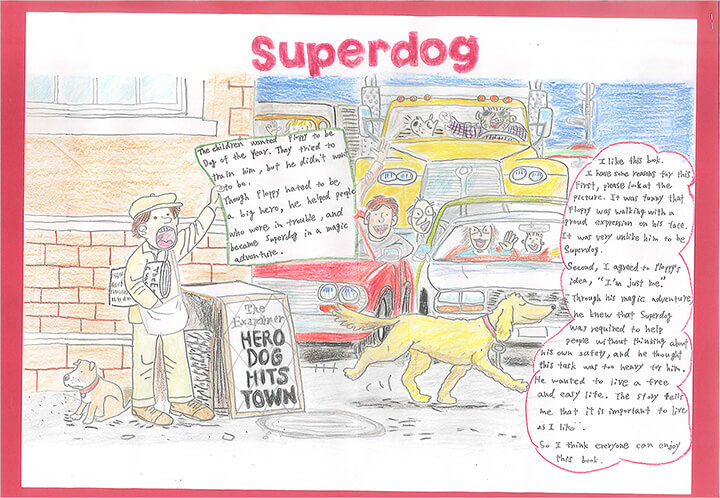 Superdog
The children wanted Floppy to be
Dog of the Year. They tried to
train him, but he didn't want
to be.
Though Floppy hated to be
a big hero, he helped people
who were in trouble, and
became Superdog in a magic
adventure.
The
Examiner
HERO
DOG
HITS
TOWN
I like this book.
I have some reasons for this.
First, please look at the
picture. It was funny that
Floppy was walking with a
proud expression on his face.
It was very unlike him to be
Superdog.
Second, I agreed to Floppy's
idea, "I'm just me."
Through his magic adventure,
he knew that Superdog
was required to help
people without thinking about
his own safety, and he thought
this task was too heavy for him.
He wanted to live a free
and easy life. The story tells
me that it is important to live
as I like.
So I think everyone can enjoy
this book.